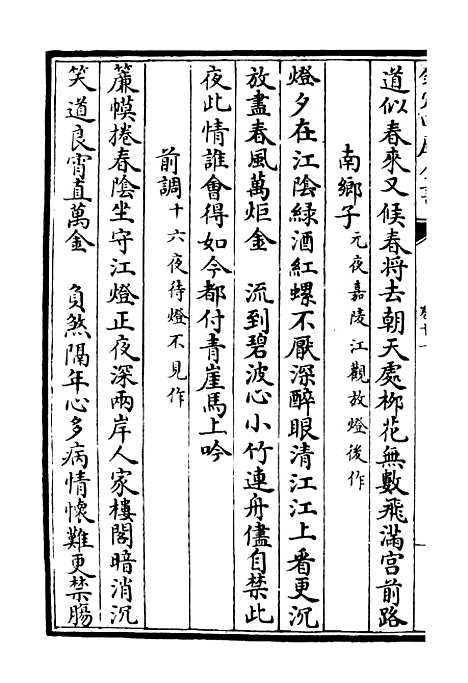 道似春來又候春将去朝天處柳花無數飛滿宫前路
南鄉子元夜嘉陵江觀放燈後作
燈夕在江陰綠酒紅螺不厭深醉眼清江江上看更沉
放盡春風萬炬金　流到碧波心小竹連舟儘自禁此
夜此情誰會得如今都付青崖馬上吟
前調十六夜待燈不見作
簾幙捲春陰坐守江燈正夜深兩岸人家樓閣暗消沉
笑道良宵直萬金　負煞隔年心多病情懷難更禁腸